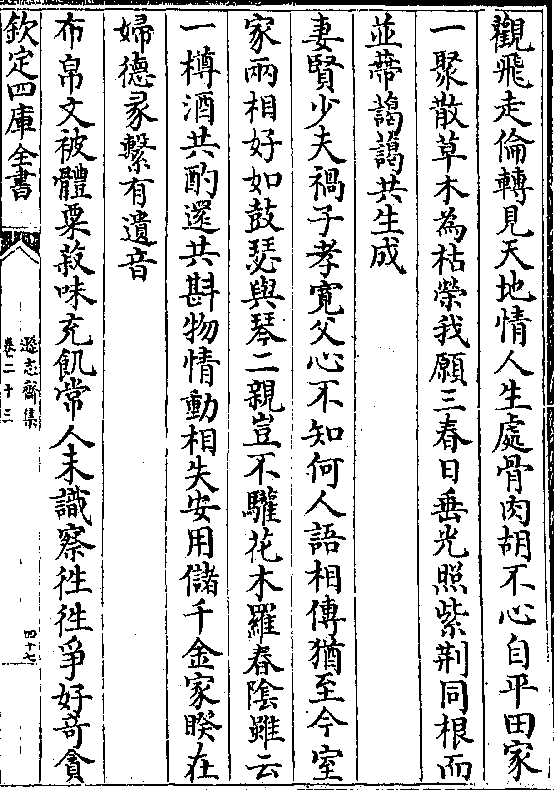 觀飛走倫轉見天地情人生處骨肉胡不心自平田家
一聚散草木為枯榮我願三春日垂光照紫荆同根而
並蒂藹藹共生成
妻賢少夫禍子孝寛父心不知何人語相傳猶至今室
家兩相好如鼓瑟與琴二親豈不驩花木羅春陰雖云
一樽酒共酌還共斟物情動相失安用儲千金家睽在
婦德彖繫有遺音
布帛文被體粟菽味充飢常人未識察徃徃爭好奇貪
欽定四庫全書
遜志齋集
卷二十三
四十七